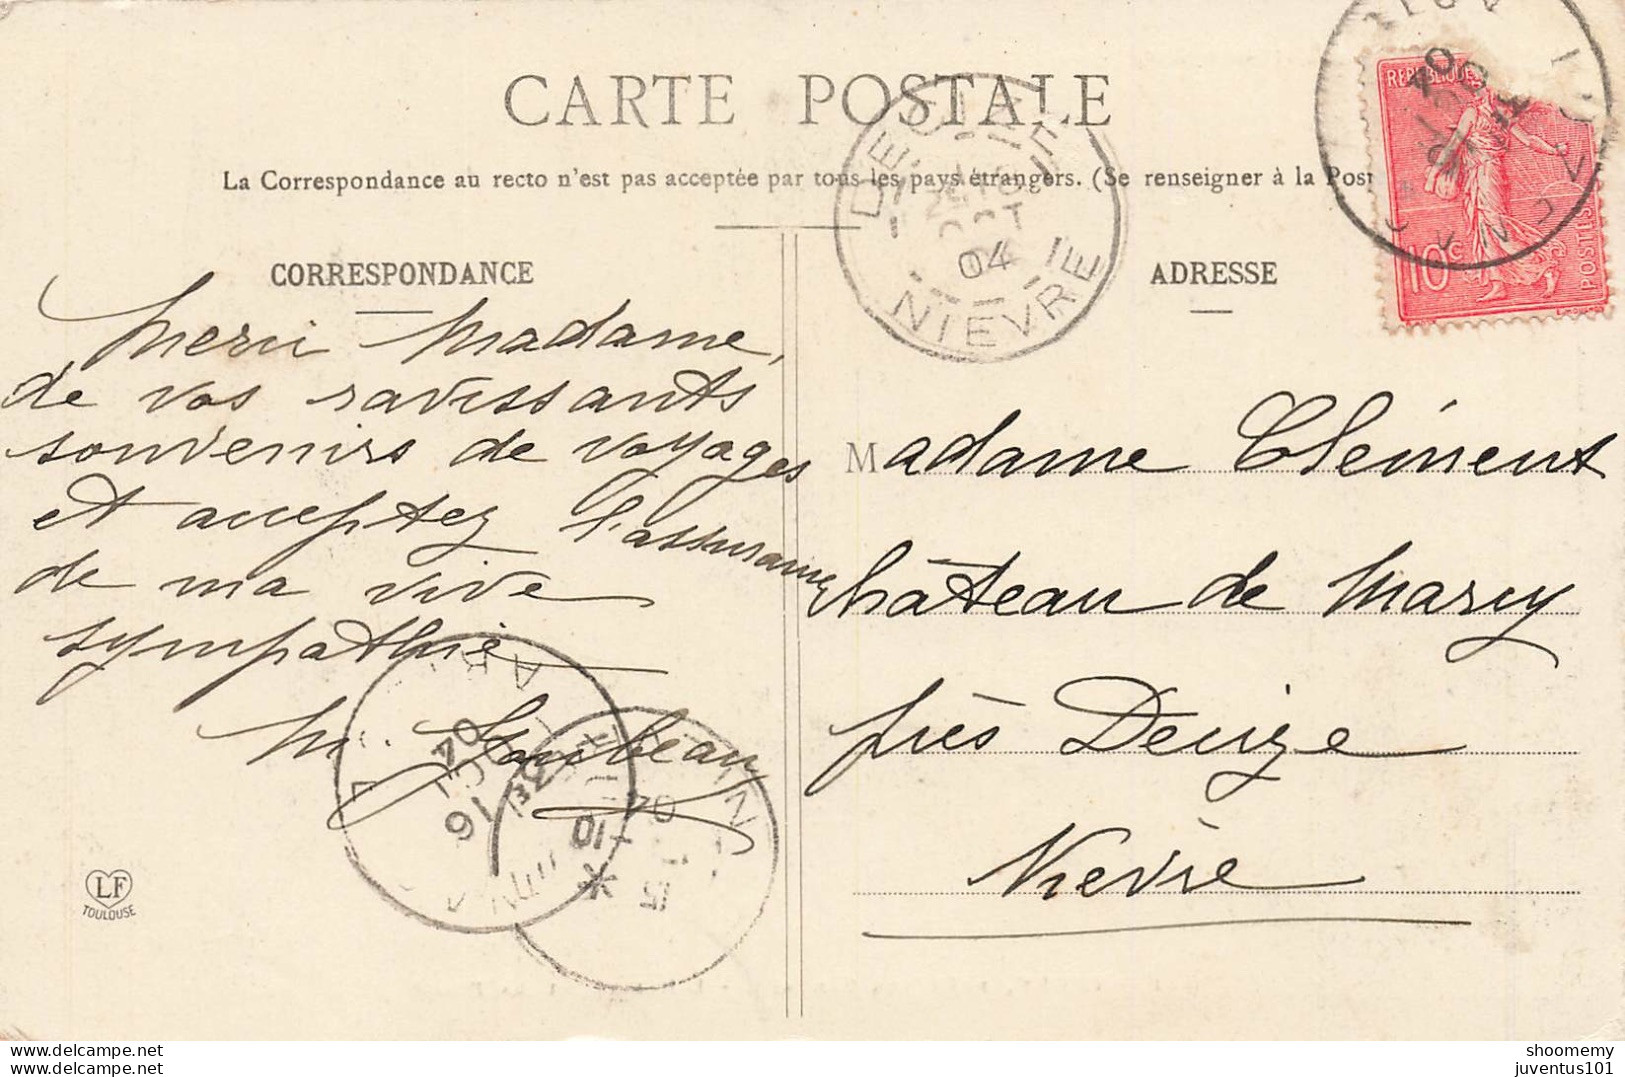 CARTE POSTALE
La Correspondance au recto n'est pas acceptée par tous les pays étrangers. (Se renseigner à la Post
CORRESPONDANCE
Merci Madame,
de vos ravissants
souvenirs de voyages
et acceptez l'assurance
de ma vive
sympathie
M.
LF
TOULOUSE
ADRESSE
Madame Clément
château de Marcy
près Decize
Nièvre
NIEVRE
04
OCT
04
16
04
10
15
REPUBLIQUE
10c
POSTES
delcampe.net
shoomemy
juventus101